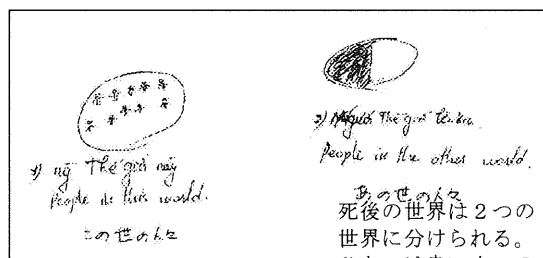 1) ng Thế giới này
People in this world.
この世の人々
2) Thế giới
People in the other world.
あの世の人々
死後の世界は２つの
世界に分けられる。